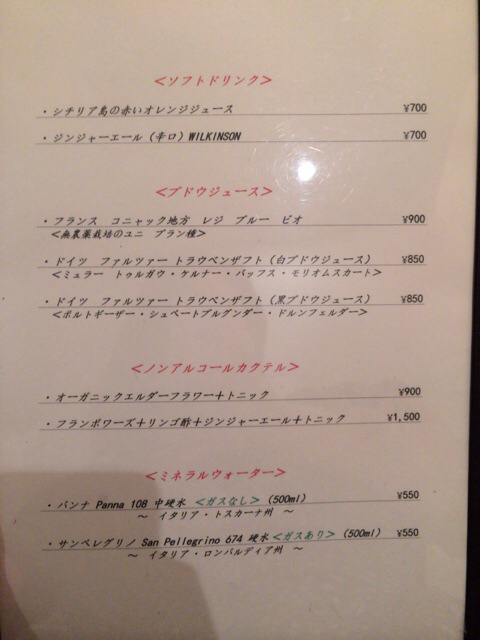 ＜ソフトドリンク＞
・シチリア島の赤いオレンジジュース ¥700
・ジンジャーエール（辛口）WILKINSON ¥700
＜ブドウジュース＞
・フランス コニャック地方 レジ ブルー ビオ ¥900
＜無農薬栽培のユニ ブラン種＞
・ドイツ ファルツァー トラウベンザフト（白ブドウジュース） ¥850
＜ミュラー トゥルガウ・ケルナー・バッフス・モリオムスカート＞
・ドイツ ファルツァー トラウベンザフト（黒ブドウジュース） ¥850
＜ポルトギーザー・シュペートブルグンダー・ドルンフェルダー＞
＜ノンアルコールカクテル＞
・オーガニックエルダーフラワー＋トニック ¥900
・フランボワーズ＋リンゴ酢＋ジンジャーエール＋トニック ¥1,500
＜ミネラルウォーター＞
・パンナ Panna 108 中硬水 ＜ガスなし＞ (500ml) ¥550
～ イタリア・トスカーナ州 ～
・サンペレグリノ San Pellegrino 674 硬水 ＜ガスあり＞ (500ml) ¥550
～ イタリア・ロンバルディア州 ～